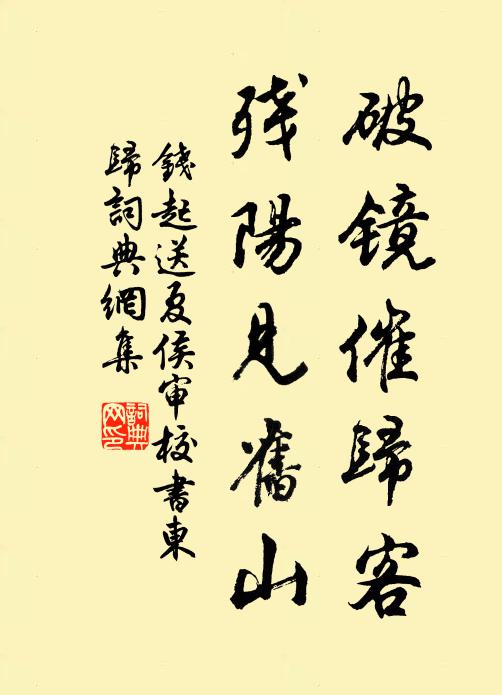 破镜催歸客
残陽見舊山
錢起送夏侯审校書東
歸詞典網集
詞典网印